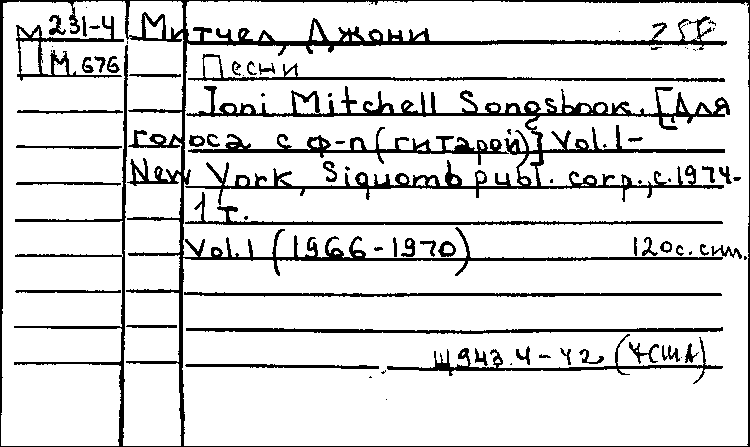 М 231-4 Митчел, Джони
П М.676 Песни
Joni Mitchell Songsbook. [Для
голоса с ф-п (гитарой)] Vol.1-
New York, Siquomb publ. corp., c.1974-
1 т.
Vol.1 (1966-1970) 120с. сим.
Щ943.4-42 (4США)